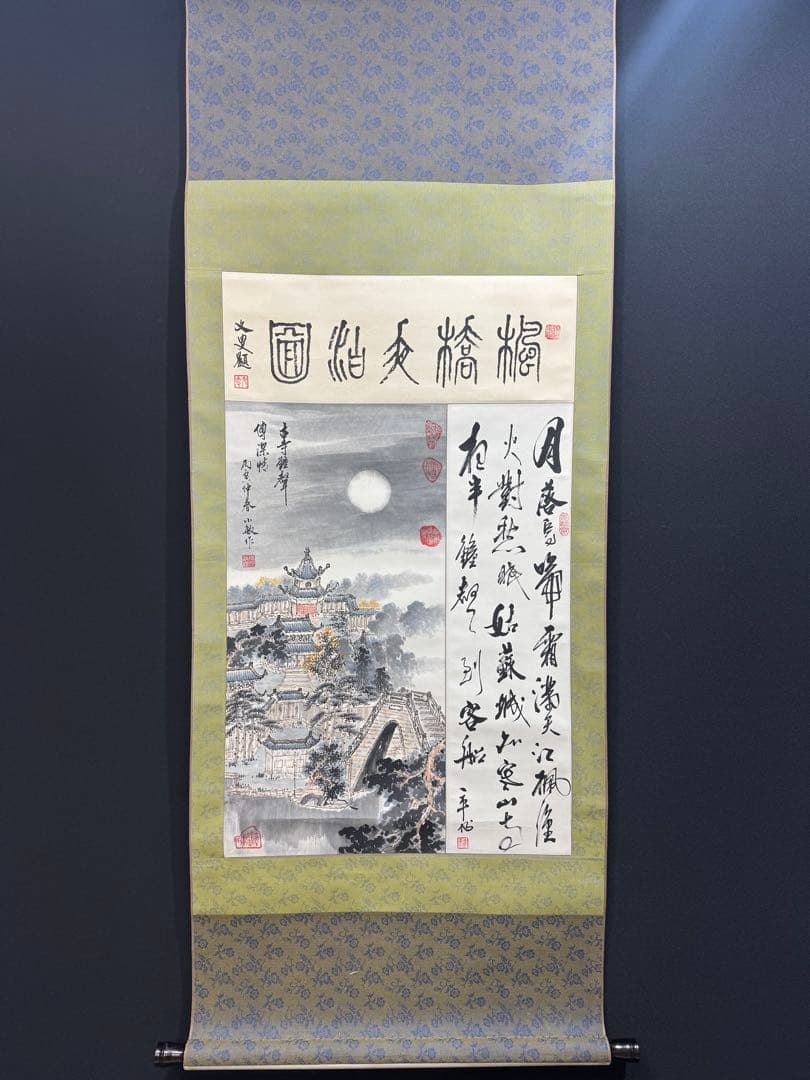 楓橋夜泊圖
題
月落烏啼霜滿天江楓漁
火對愁眠姑蘇城外寒山寺
夜半鐘聲到客船
古寺鐘聲
傳深情
丙寅仲春小敏作